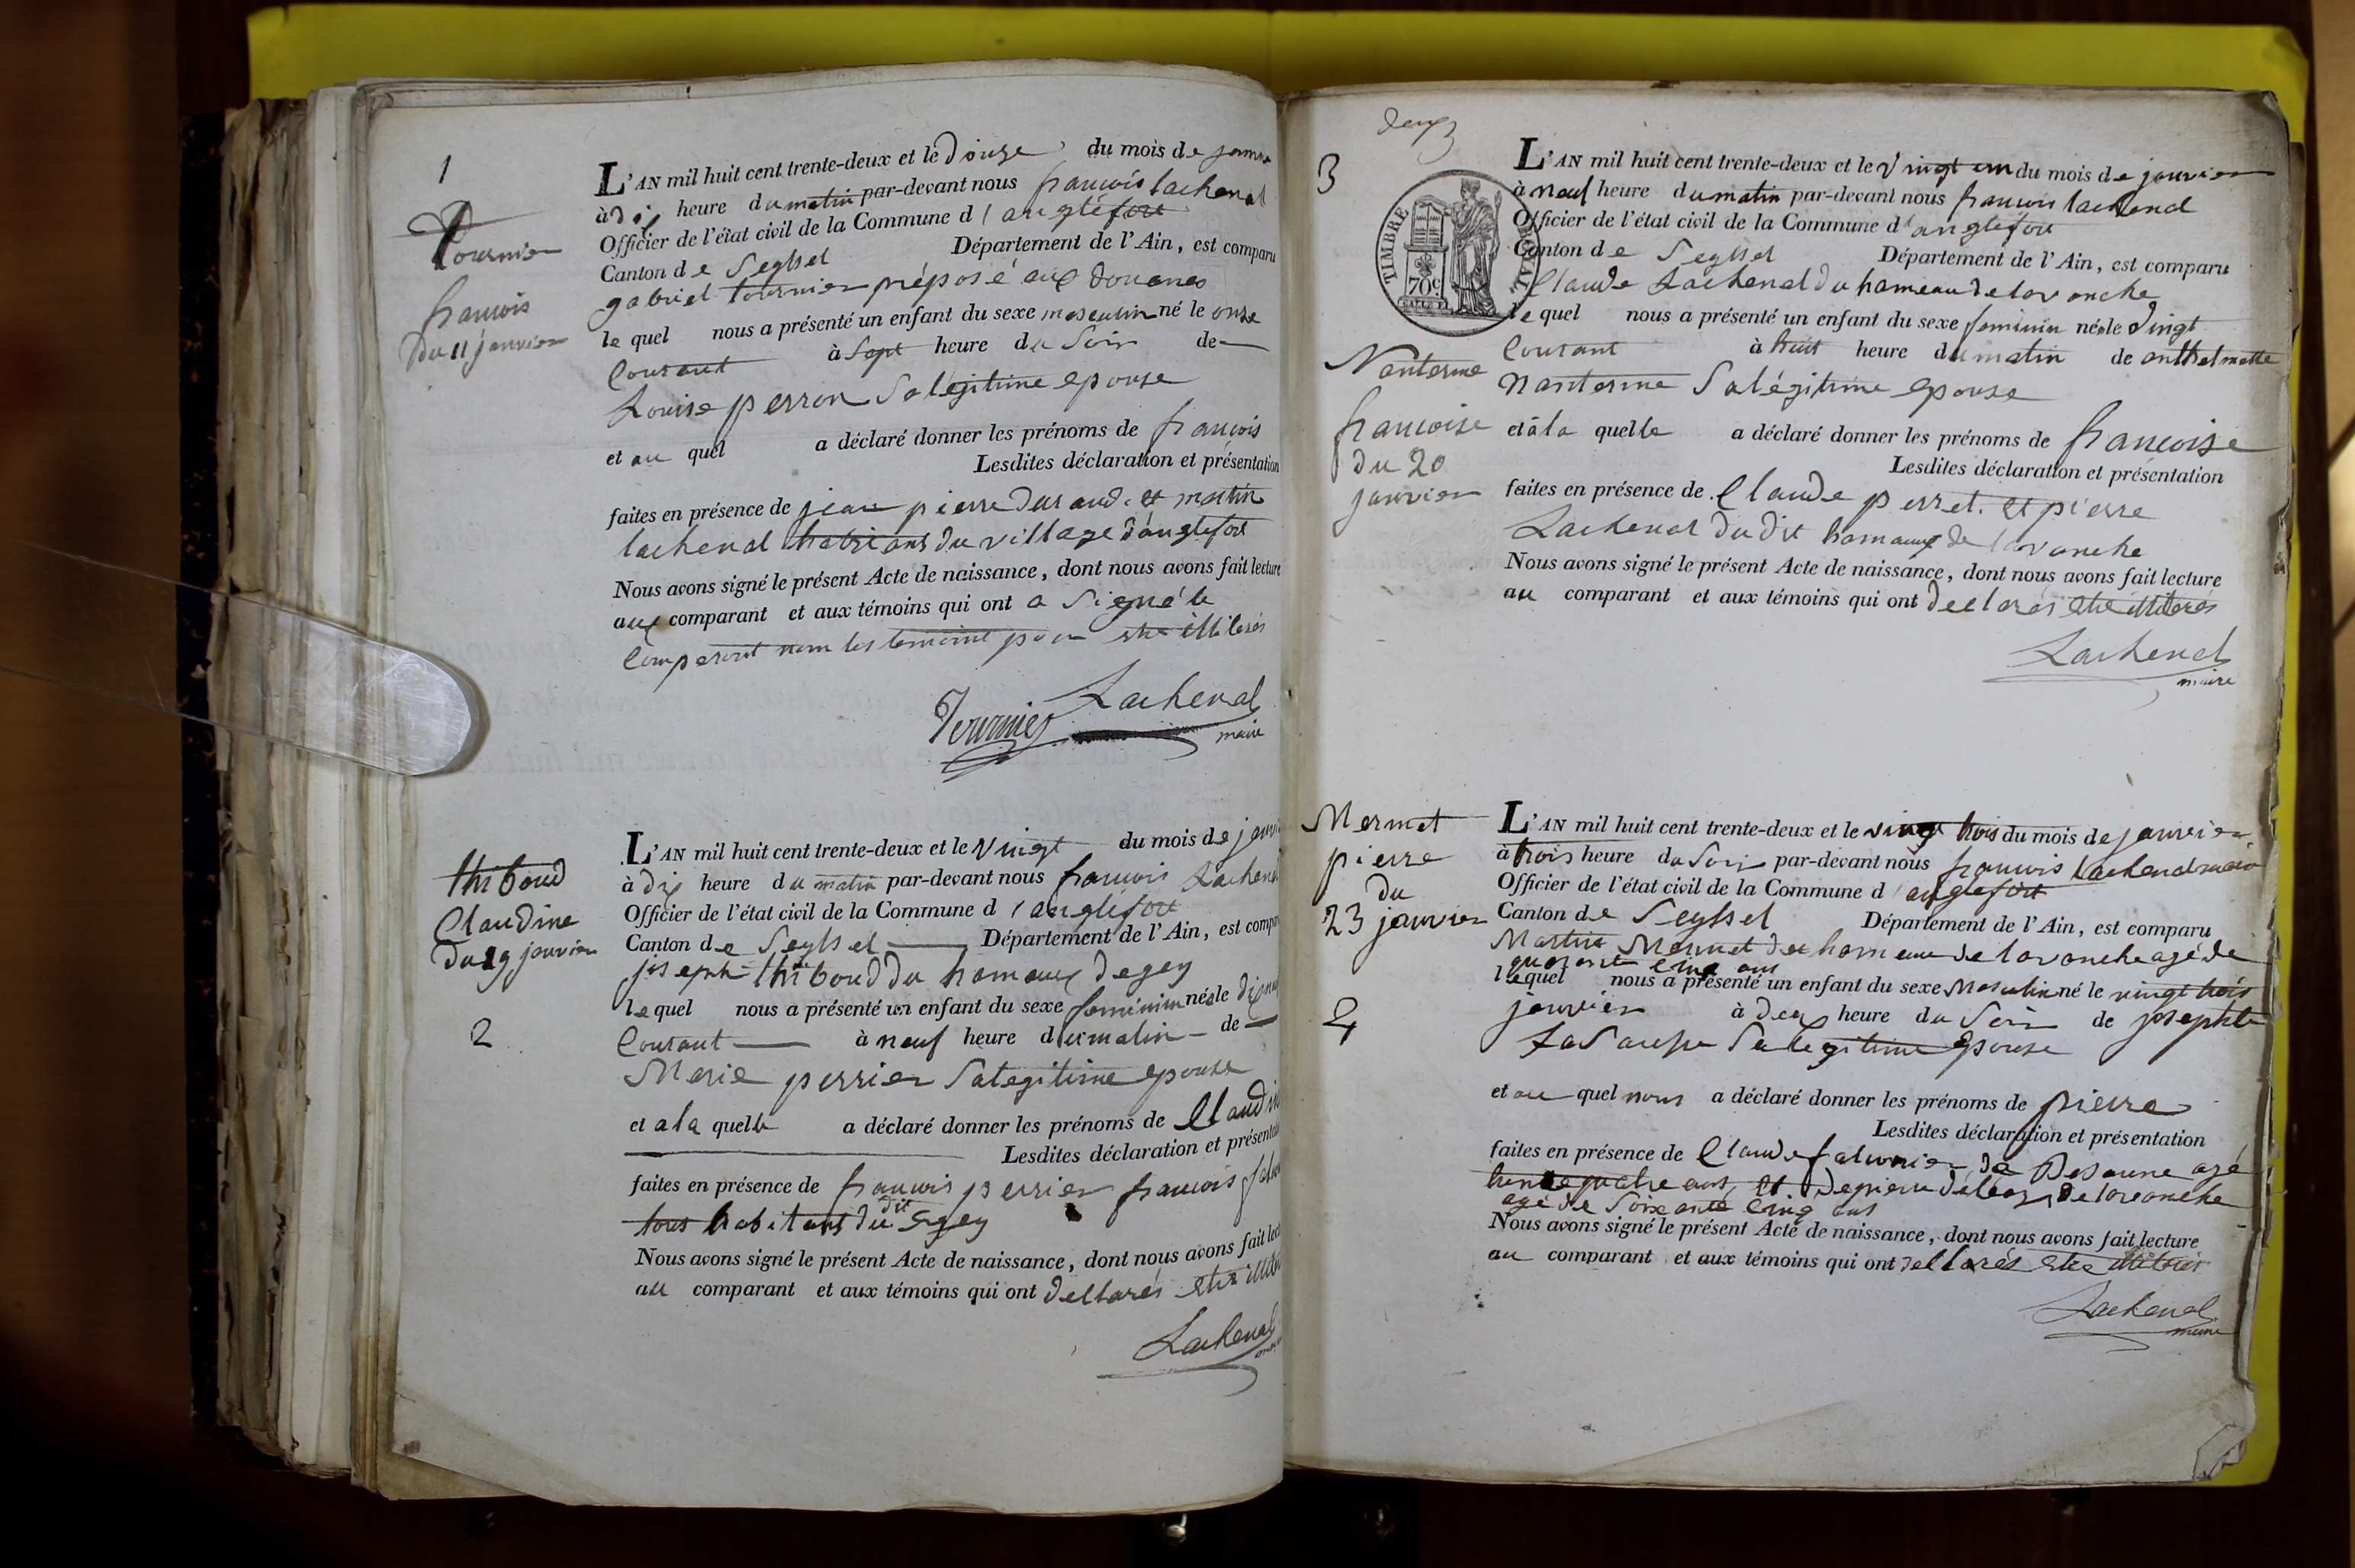 1
Tournier
françois
du 11 janvier
L'AN mil huit cent trente-deux et le douze du mois de janvie
à dix heure du matin par-devant nous françois lachenal
Officier de l'état civil de la Commune d'anglefort
Canton de Seyssel Département de l'Ain, est comparu
gabriel tournier préposé aux douanes
le quel nous a présenté un enfant du sexe masculin né le onze
Courant à Sept heure du Soir de
Louise perron Sa legitime epouse
et au quel a déclaré donner les prénoms de françois
Lesdites déclaration et présentation
faites en présence de jean pierre durand. et martin
lachenal habitans du village d'anglefort
Nous avons signé le présent Acte de naissance, dont nous avons fait lecture
aux comparant et aux témoins qui ont a Signé le
Comparant nom les temoins pour etre illiterés
Tournier Lachenal
maire
thiboud
Claudine
du 19 janvier
2
L'AN mil huit cent trente-deux et le Vingt du mois de janvi
à dix heure du matin par-devant nous françois Lachenal
Officier de l'état civil de la Commune d'anglefort
Canton de Seyssel Département de l'Ain, est compa
joseph thiboud du hameaux de gey
le quel nous a présenté un enfant du sexe feminim née le dix neuf
Courant à neuf heure du matin de
Marie perrier Sa legitime epouse
et a la quelle a déclaré donner les prénoms de Claudine
Lesdites déclaration et présentation
faites en présence de françois perrier françois
tous habitans du dit gey
Nous avons signé le présent Acte de naissance, dont nous avons fait lect
au comparant et aux témoins qui ont declarés etre illite
Lachenal
maire
deux
3
TIMBRE
70c
Nanterme
françoise
du 20
janvier
L'AN mil huit cent trente-deux et le Vingt un du mois de janvier
à neuf heure du matin par-devant nous françois lachenal
Officier de l'état civil de la Commune d'anglefort
Canton de Seyssel Département de l'Ain, est comparu
Claude Lachenal du hameau de lavanche
le quel nous a présenté un enfant du sexe feminin née le Vingt
Courant à huit heure du matin de anthelmette
Nanterme Sa légitime epouse
et à la quelle a déclaré donner les prénoms de françoise
Lesdites déclaration et présentation
faites en présence de Claude perret. et pierre
Lachenal du dit hamaux de lavanche
Nous avons signé le présent Acte de naissance, dont nous avons fait lecture
au comparant et aux témoins qui ont declarés etre illiterés
Lachenal
maire
Mermet
pierre
du
23 janvier
4
L'AN mil huit cent trente-deux et le vingt trois du mois de janvier
à trois heure du Soir par-devant nous françois lachenal maire
Officier de l'état civil de la Commune d'anglefort
Canton de Seyssel Département de l'Ain, est comparu
Martin Mermet du hameau de lavanche agé de
quarante cinq ans
lequel nous a présenté un enfant du sexe Masculin né le vingt trois
janvier à deux heure du Soir de josephte
Sa legitime Epouse
et au quel nous a déclaré donner les prénoms de pierre
Lesdites déclaration et présentation
faites en présence de Claude falconier de agé
trente quatre ans, et de pierre de lavanche
agé de Soixante cinq ans
Nous avons signé le présent Acte de naissance, dont nous avons fait lecture
au comparant et aux témoins qui ont declarés etre illiterés
Lachenal
maire